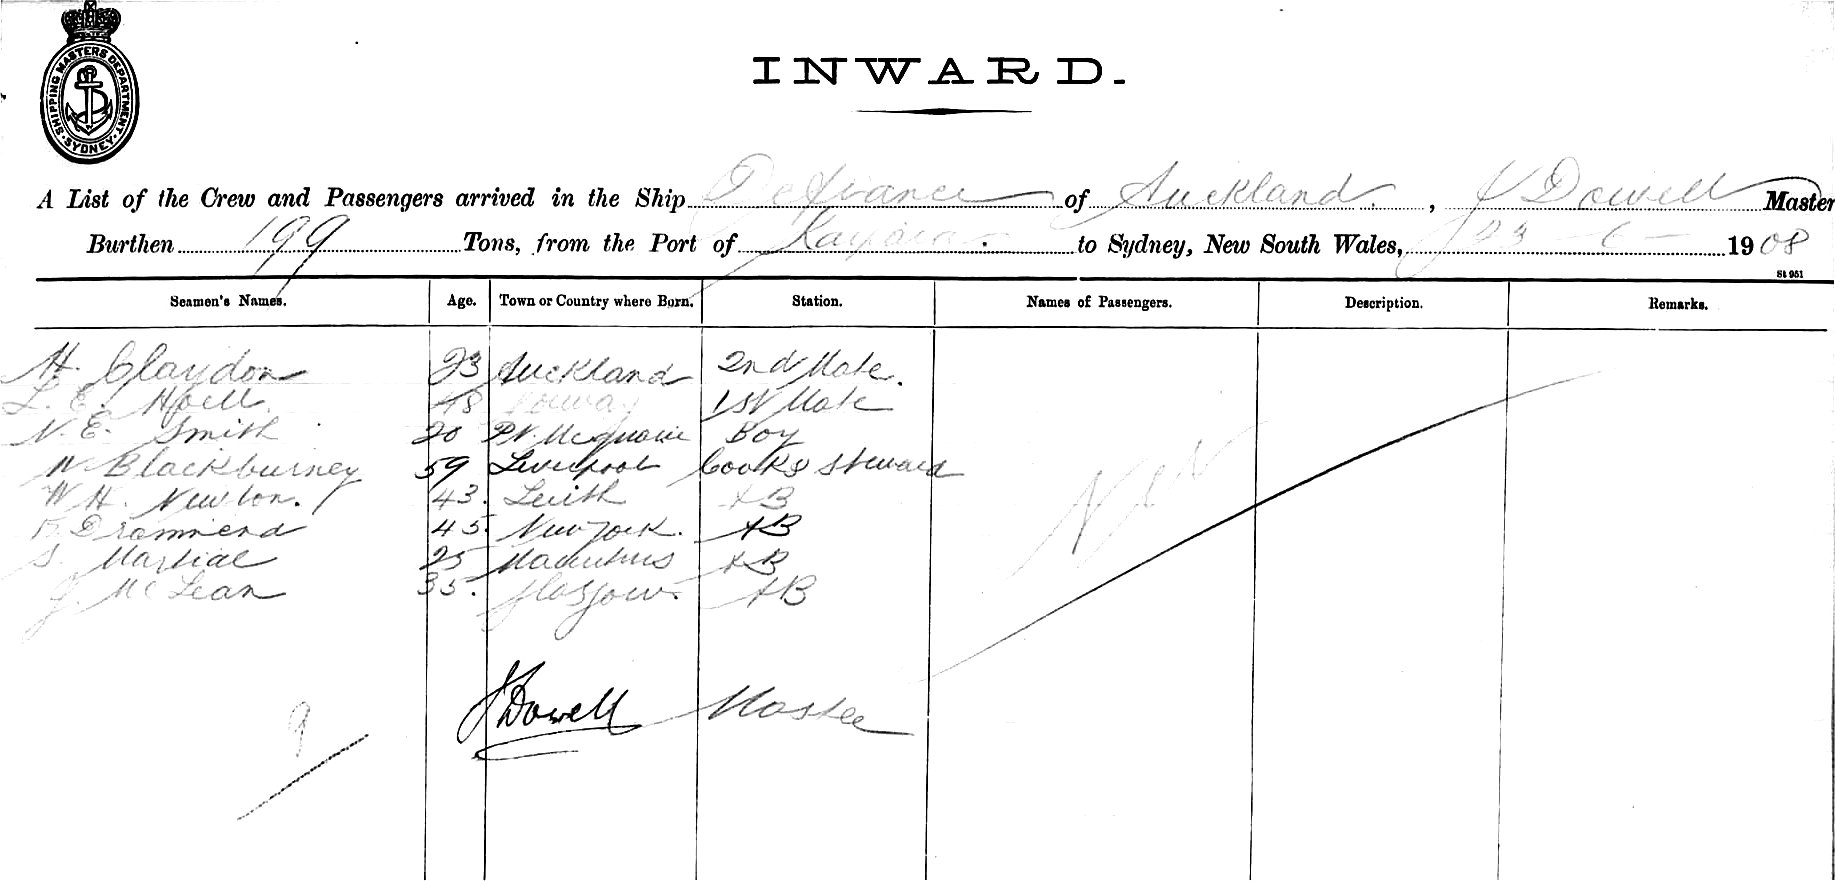 SHIPPING MASTERS DEPARTMENT · SYDNEY ·
INWARD.
A List of the Crew and Passengers arrived in the Ship Defiance of Auckland, J Dowell Master
Burthen 199 Tons, from the Port of to Sydney, New South Wales, 23-6-1908
St 951
Seamen's Names. Age. Town or Country where Born. Station. Names of Passengers. Description. Remarks.
H. Claydon 23 Auckland 2nd Mate.
L. E. 48 Norway 1st Mate
N. E. Smith 20 Pt. Mcquarie Boy
W Blackburney 59 Liverpool Cook & Steward
W H. Newton. 43. Leith AB
Drommend 45. New York. AB
S. Martial 25 Mauritius AB
J. McLean 35. Glasgow. AB
Nil
J Dowell Master
9